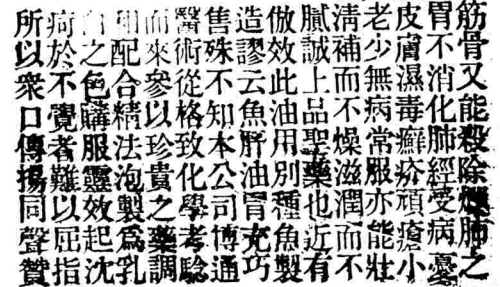 筋骨又能殺除爛肺之
胃不消化肺經受病憂
皮膚濕毒癬疥頑瘡小
老少無病常服亦能壯
淸補而不燥滋潤而不
膩誠上品聖藥也近有
倣效此油用別種魚製
造謬云魚肝油冒充巧
售殊不知本公司博通
醫術從格致化學考騐
而來參以珍貴之藥調
和配合精法泡製爲乳
白之色購服靈效起沈
疴於不覺者難以屈指
所以衆口傳揚同聲贊